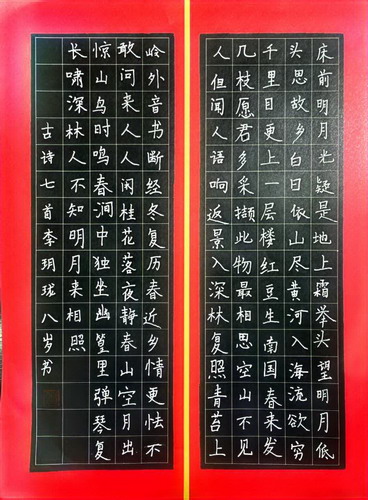 床前明月光疑是地上霜举头望明月低
头思故乡白日依山尽黄河入海流欲穷
千里目更上一层楼红豆生南国春来发
几枝愿君多采撷此物最相思空山不见
人但闻人语响返景入深林复照青苔上
岭外音书断经冬复历春近乡情更怯不
敢问来人人闲桂花落夜静春山空月出
惊山鸟时鸣春涧中独坐幽篁里弹琴复
长啸深林人不知明月来相照
古诗七首李玥珑八岁书